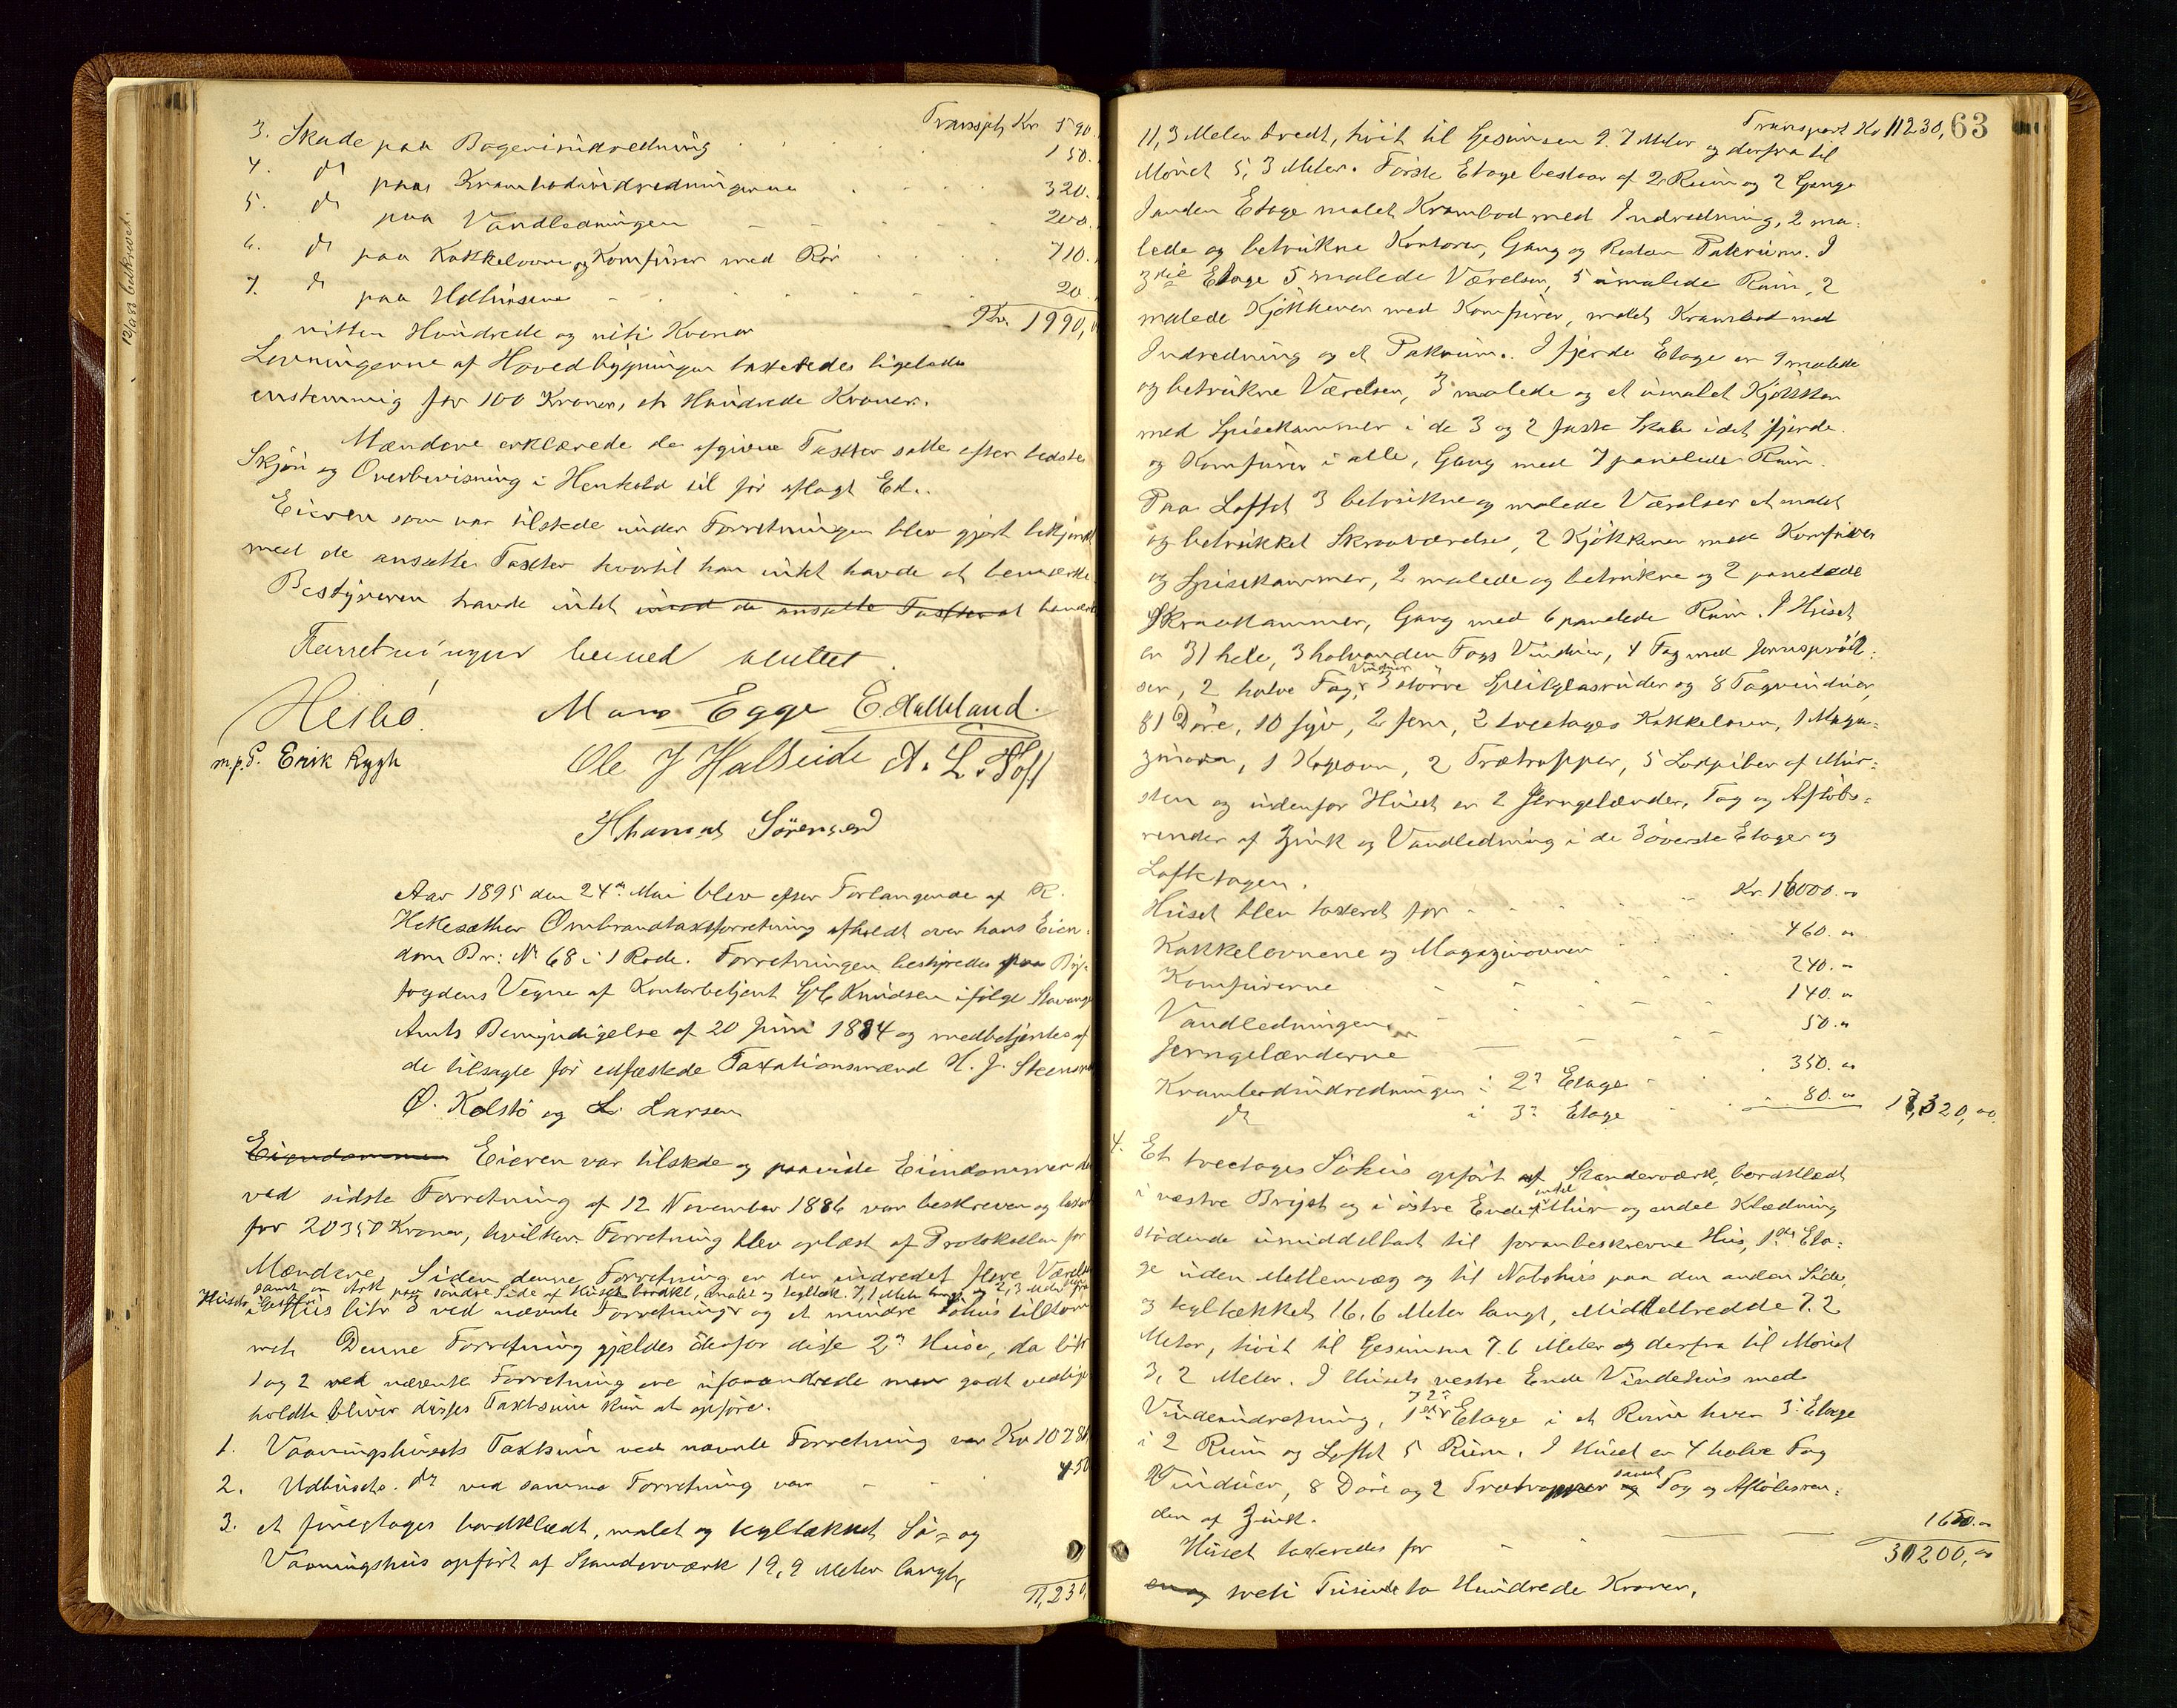 Transpt Kr 590.
3. Skade paa Bageriindredning 150.
4. do paa Krambodindredningerne 320.
5. do paa Vandledningen 200.
6. do paa Kakkelovne og Komfürer med Rör 710.
7. do paa Udhüsene 20.
Kr. 1990,
nitten Hündrede og niti Kroner
Levningerne af Hovedbygningen taxeredes ligeledes
enstemmig for 100 Kroner, et Hündrede Kroner.
Mændene erklærede de afgivne Taxter satte efter bedste
Skjön og Overbevisning i Henhold til för aflagt Ed.
Eieren som var tilstede ünder Forretningen blev gjort bekjendt
med de ansatte Taxter hvortil han intet havde at bemærke.
Bestyreren havde intet imod de ansatte Taxter at bemærke
Forretningen hermed sluttet.
Heibö. Mans Egge E. Hatteland.
m.p.P. Erik Rygh Ole J Halseide A. L. Toft
Thomas Sörensen
12/11 83 beskrevet.
Aar 1895 den 24de Mai blev efter Forlangende af R.
Hekesæther Ombrandtaxtforretning afholdt over hans Eien-
dom Br: No 68 i 1 Rode. Forretningen bestyredes paa By-
fogdens Vegne af Kontorbetjent G C Knüdsen ifölge Stavanger
Amts Bemyndigelse af 20 Jüni 1884 og medbetjentes af
de tilsagte för edfæstede Taxationsmænd H. J. Steensen
Ö. Kolstö og L. Larsen
Eiendommen Eieren var tilstede og paaviste Eiendommen der
ved sidste Forretning af 12 November 1886 var beskreven og taxeret
for 20350 Kroner, hvilken Forretning blev oplæst af Protokollen for
Mændene. Siden denne Forretning er der indredet flere Værelser
samt en Ark paa söndre Side af Hüset bordkl, malet og tegltækt. 7,1 Meter langt og 2,3 Meter
i Hüs litr 3 ved nævnte Forretning og et mindre Söhüs tilkom-
met. Denne Forretning gjældes derfor disse 2de Hüse, da litr
1 og 2 ved nævnte Forretning ere üforandrede men godt vedlige-
holdte bliver disses Taxtsüm kün at opföre.
1. Vaaningshüsets Taxtsüm ved nævnte Forretning var Kr 10780
2. Udhüsets do ved samme Forretning var 450
3. et fireetages bordklædt, malet og tegltækket Sö- og
Vaaningshüs opfört af Standerværk 19,9 Meter langt,
11,230,
Transport Kr 11230, 63
11,3 Meter bredt, höit til Gesimsen 9.7 Meter og derfra til
Mönet 5,3 Meter. Förste Etage bestaar af 2 Rüm og 2 Gange
I anden Etage malet Krambod med Indredning, 2 ma-
lede og betrükne Kontorer, Gang og Resten Pakrüm. I
3die Etage 5 malede Værelser, 5 ümalede Rüm, 2
malede Kjökkener med Komfürer, malet Krambod med
Indredning og et Pakrüm. I fjerde Etage er 9 malede
og betrükne Værelser, 3 malede og et ümalet Kjökken
med Spisekammer i de 3 og 2 faste Skabe i det fjerde
og Komfürer i alle, Gang med 7 panelede Rüm.
Paa Loftet 3 betrükne og malede Værelser et malet
og betrükket Skraaværelse, 2 Kjökkener med Komfürer
og Spisekammer, 2 malede og betrükne og 2 panelede
Skraakammer, Gang med 6 panelede Rüm. I Hüset
er 31 hele, 3 halvanden Fags Vindüer, 4 Fag med Jernspröd-
ser, 2 halve Fag Vindüer, 3 större Speilglasrüder og 8 Tagvindüer,
81 Döre, 10 fyr, 2 Jern, 2 toetages Kakkelovn, 1 Maga-
zinovn, 1 Kogeovn, 2 Trætrapper, 5 Luftpiber af Mür-
sten og üdenfor Hüset er 2 Jerngelænder, Tag og Aflöbs-
render af Zink og Vandledning i de 3 överste Etager og
Loftetagen.
Hüset blev taxeret for Kr. 16000. 00
Kakkelovnene og Magazinovnen 460. 00
Komfürerne 240. 00
Vandledningen 140. 00
Jerngelænderne 50. 00
Krambodindredningen i 2n Etage 350. 00
do i 3n Etage 80. 00 17,320,00.
4. Et treetages Söhüs opfört af Standerværk, bordklædt
i vestre Bryst og i östre Ende endel Mür og endel Klædning
stödende ümiddelbart til foranbeskrevne Hüs, 1ste Eta-
ge üden Mellemvæg og til Nabohüs paa den anden Side,
og tegltækket 16.6 Meter langt, Middelbredde 7.2
Meter, höit til Gesimsen 7.6 Meter og derfra til Mönet
3,2 Meter. I Hüsets vestre Ende Vindehüs med
Vindeindretning, 1ste & 2n Etage i et Rüm hver 3n Etage
i 2 Rüm og Loftet 5 Rüm. I Hüset er 4 halve Fag
Vindüer, 8 Döre og 2 Trætrapper samt Tag og Aflöbsren-
der af Zink.
Hüset taxeredes for 1650. 00
30200,00
en og treti Tüsinde to Hündrede Kroner.